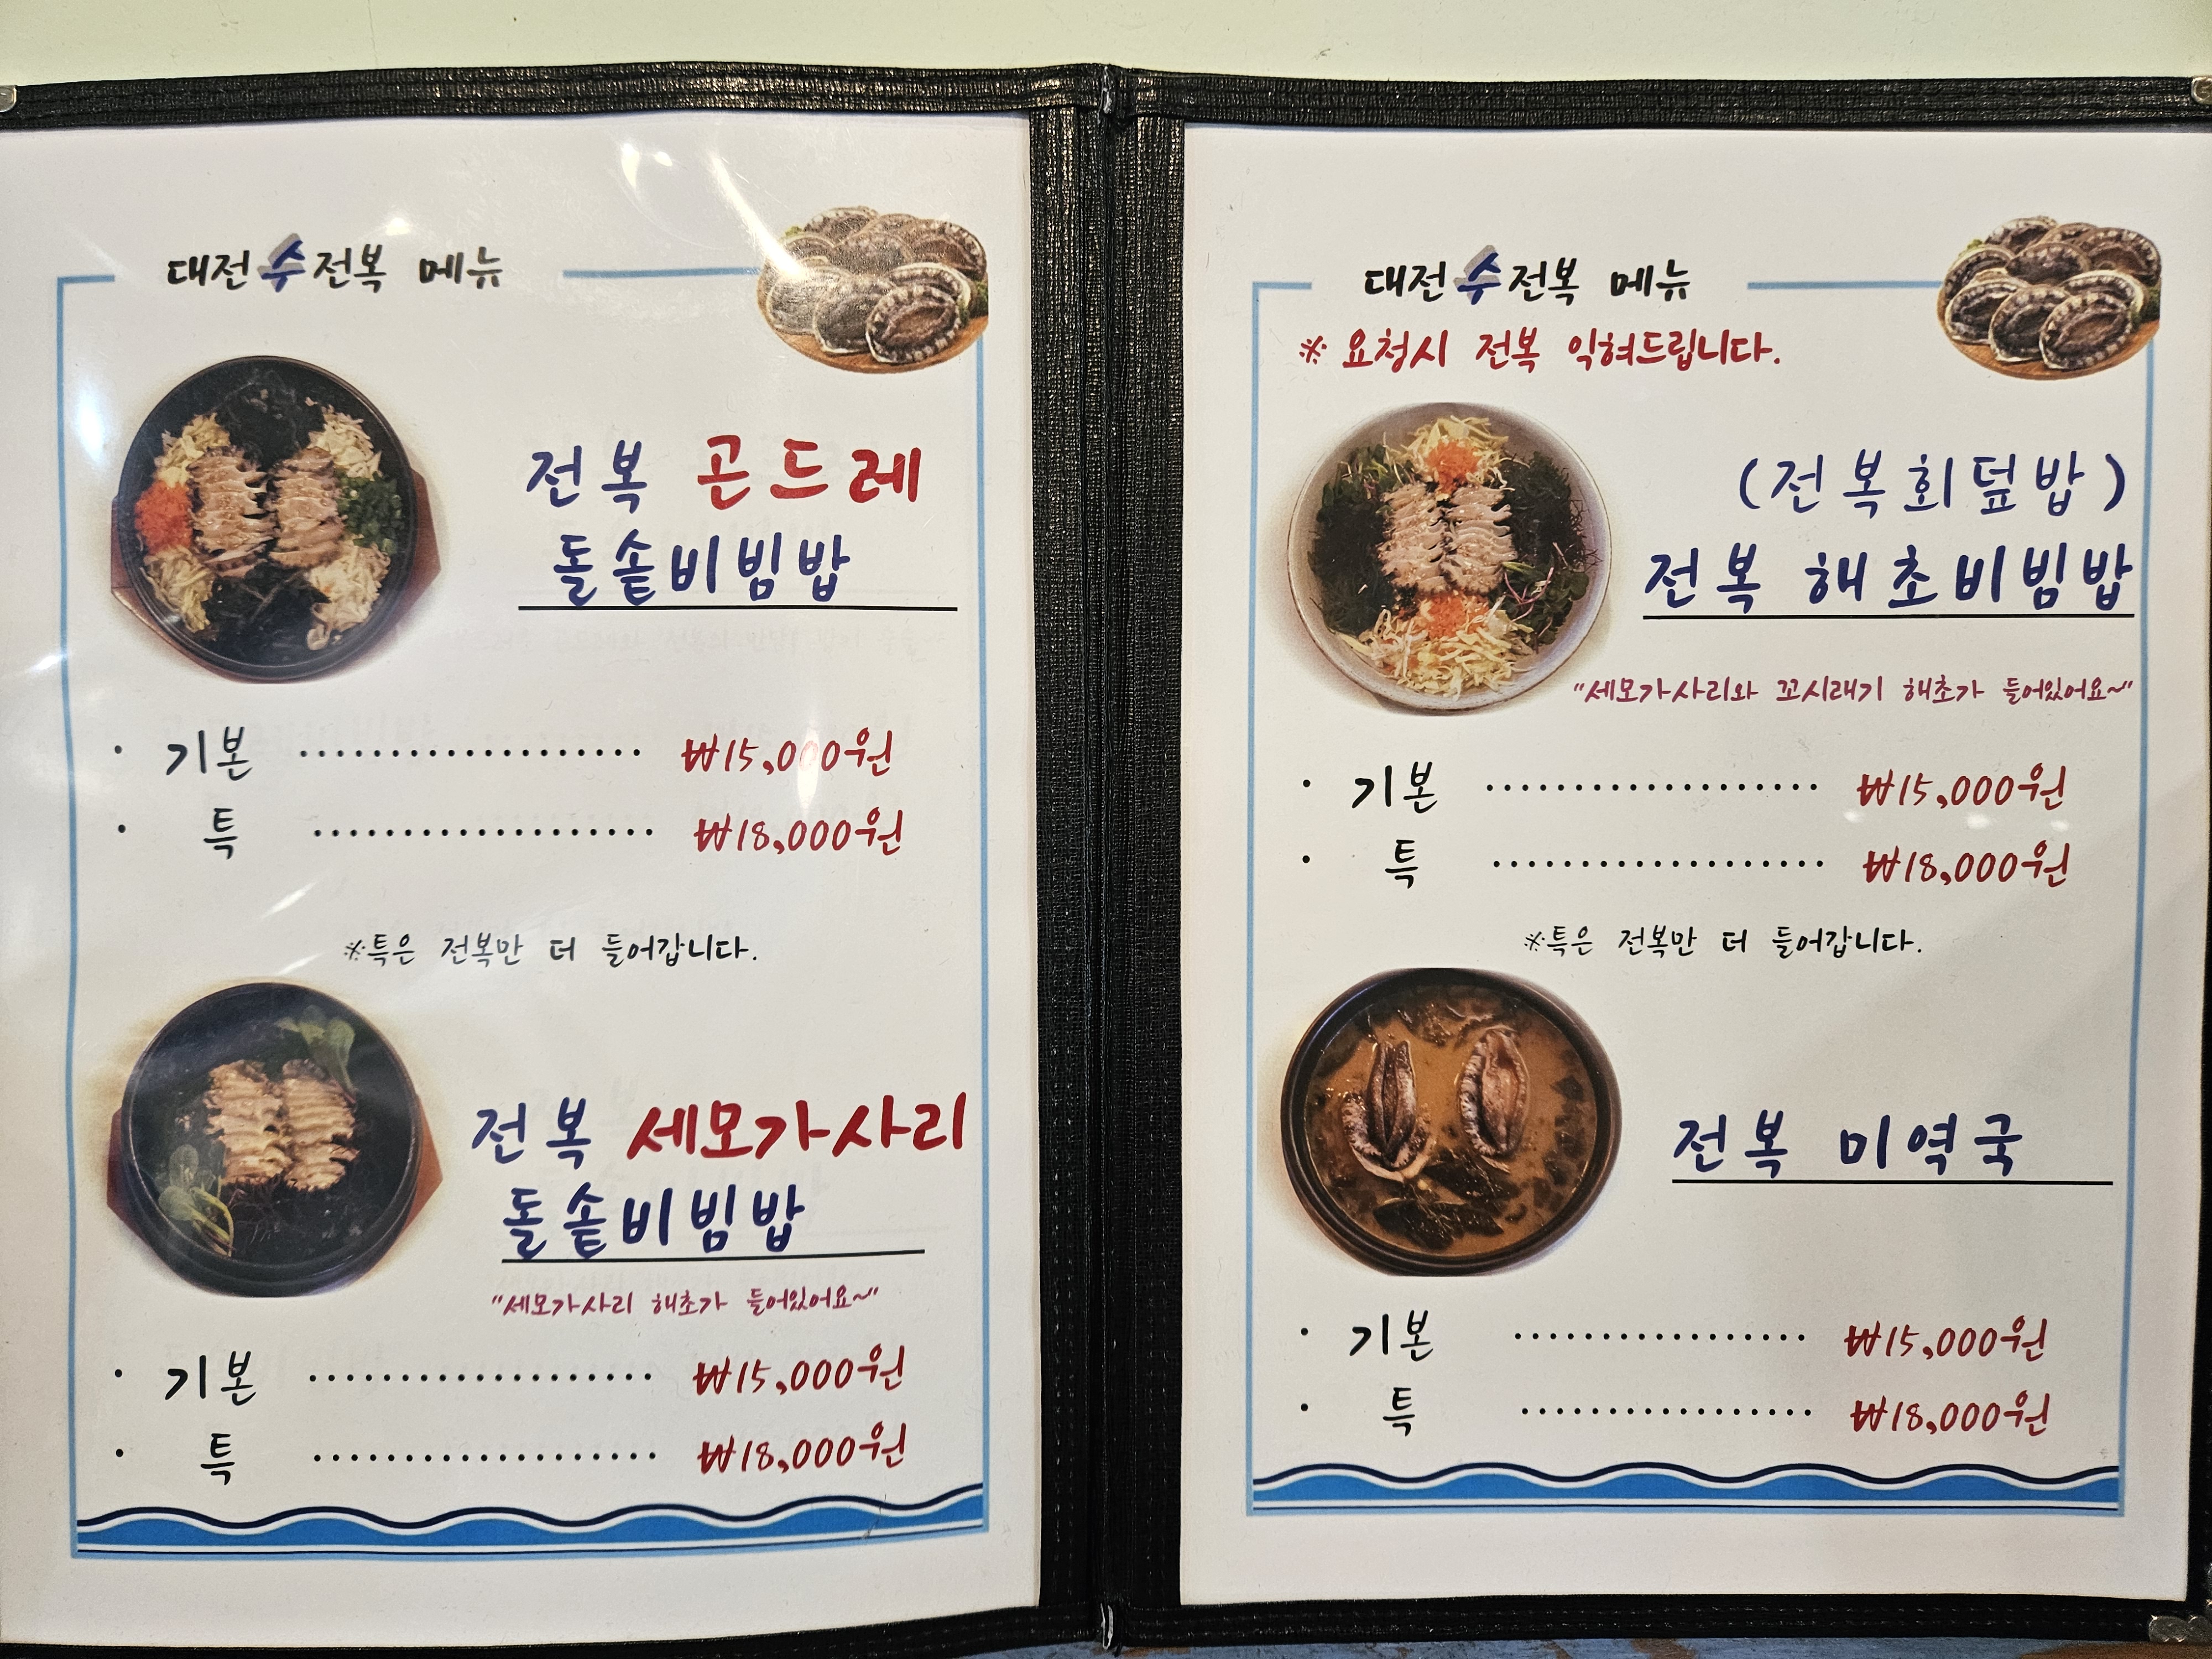 대전 수전복 메뉴
전복 곤드레
돌솥비빔밥
· 기본 ···················· ₩15,000원
· 특 ···················· ₩18,000원
※특은 전복만 더 들어갑니다.
전복 세모가사리
돌솥비빔밥
"세모가사리 해초가 들어있어요~"
· 기본 ···················· ₩15,000원
· 특 ···················· ₩18,000원
대전 수전복 메뉴
※ 요청시 전복 익혀드립니다.
(전복회덮밥)
전복 해초비빔밥
"세모가사리와 꼬시래기 해초가 들어있어요~"
· 기본 ···················· ₩15,000원
· 특 ···················· ₩18,000원
※특은 전복만 더 들어갑니다.
전복 미역국
· 기본 ·················· ₩15,000원
· 특 ·················· ₩18,000원